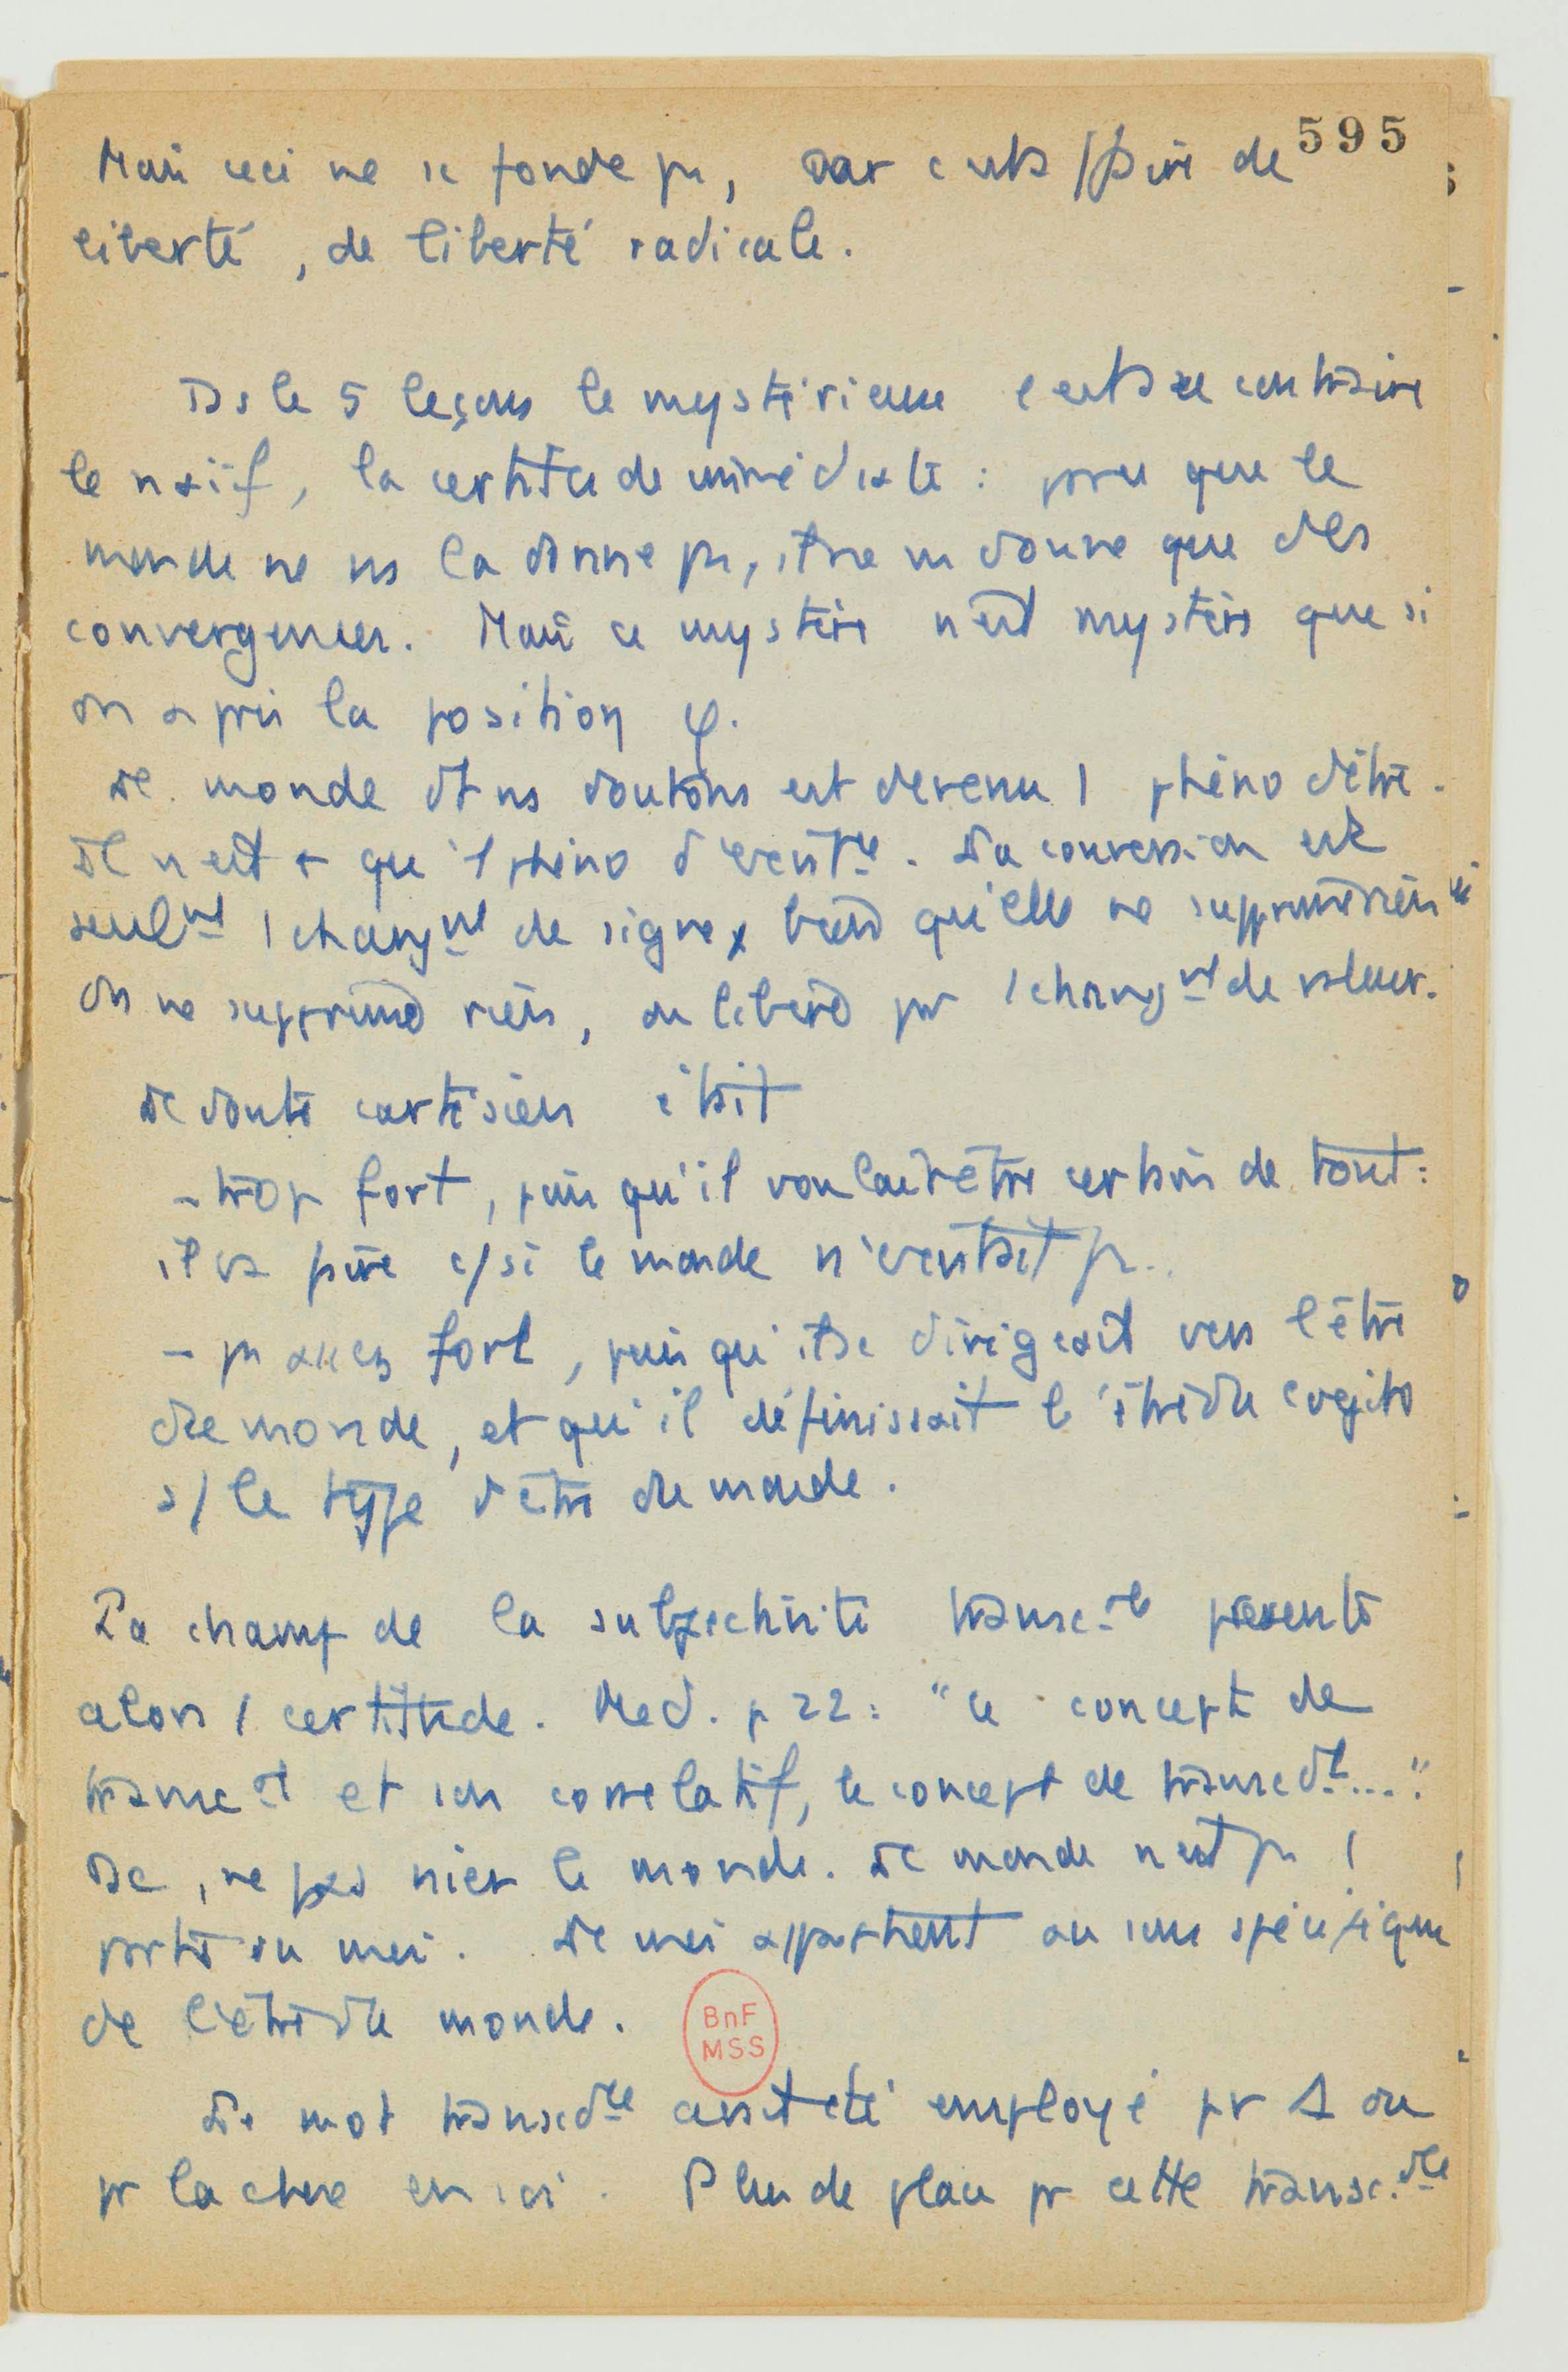 595
Mais ceci ne se fonde pas, car c'est affaire de
liberté, de liberté radicale.
Ds les 5 leçons le mystérieux c'est au contraire
le naïf, la certitude immédiate : parce que le
monde ne ns la donne pas, il ne ns donne que des
convergences. Mais ce mystère n'est mystère que si
on a pris la position φ.
Le monde dt ns doutons est devenu 1 phéno d'être.
Il n'est + qu'1 phéno d'existce. La conversion est
seulmt 1 changmt de signe, bien qu'elle ne supprime rien
On ne supprime rien, on libère par 1 changmt de valeur.
Le doute cartésien était
- trop fort, puisqu'il voulait être certain de tout :
il va faire c/ si le monde n'existait pas.
- pas assez fort, puisqu'il se dirigeait vers l'être
du monde, et qu'il définissait l'être du cogito
s/ le type d'être du monde.
Le champ de la subjectivité transcle présente
alors 1 certitude. Med. p 22 : "le concept de
transct et son corrélatif, le concept de transcdl...."
Dc, ne pas nier le monde. Le monde n'est pas 1
partie du moi. Le moi appartient au sens spécifique
de l'être du monde.
Le mot transcdce avait été employé pr
pr la chose en soi. Plus de place pr cette transc.dce
BnF
MSS